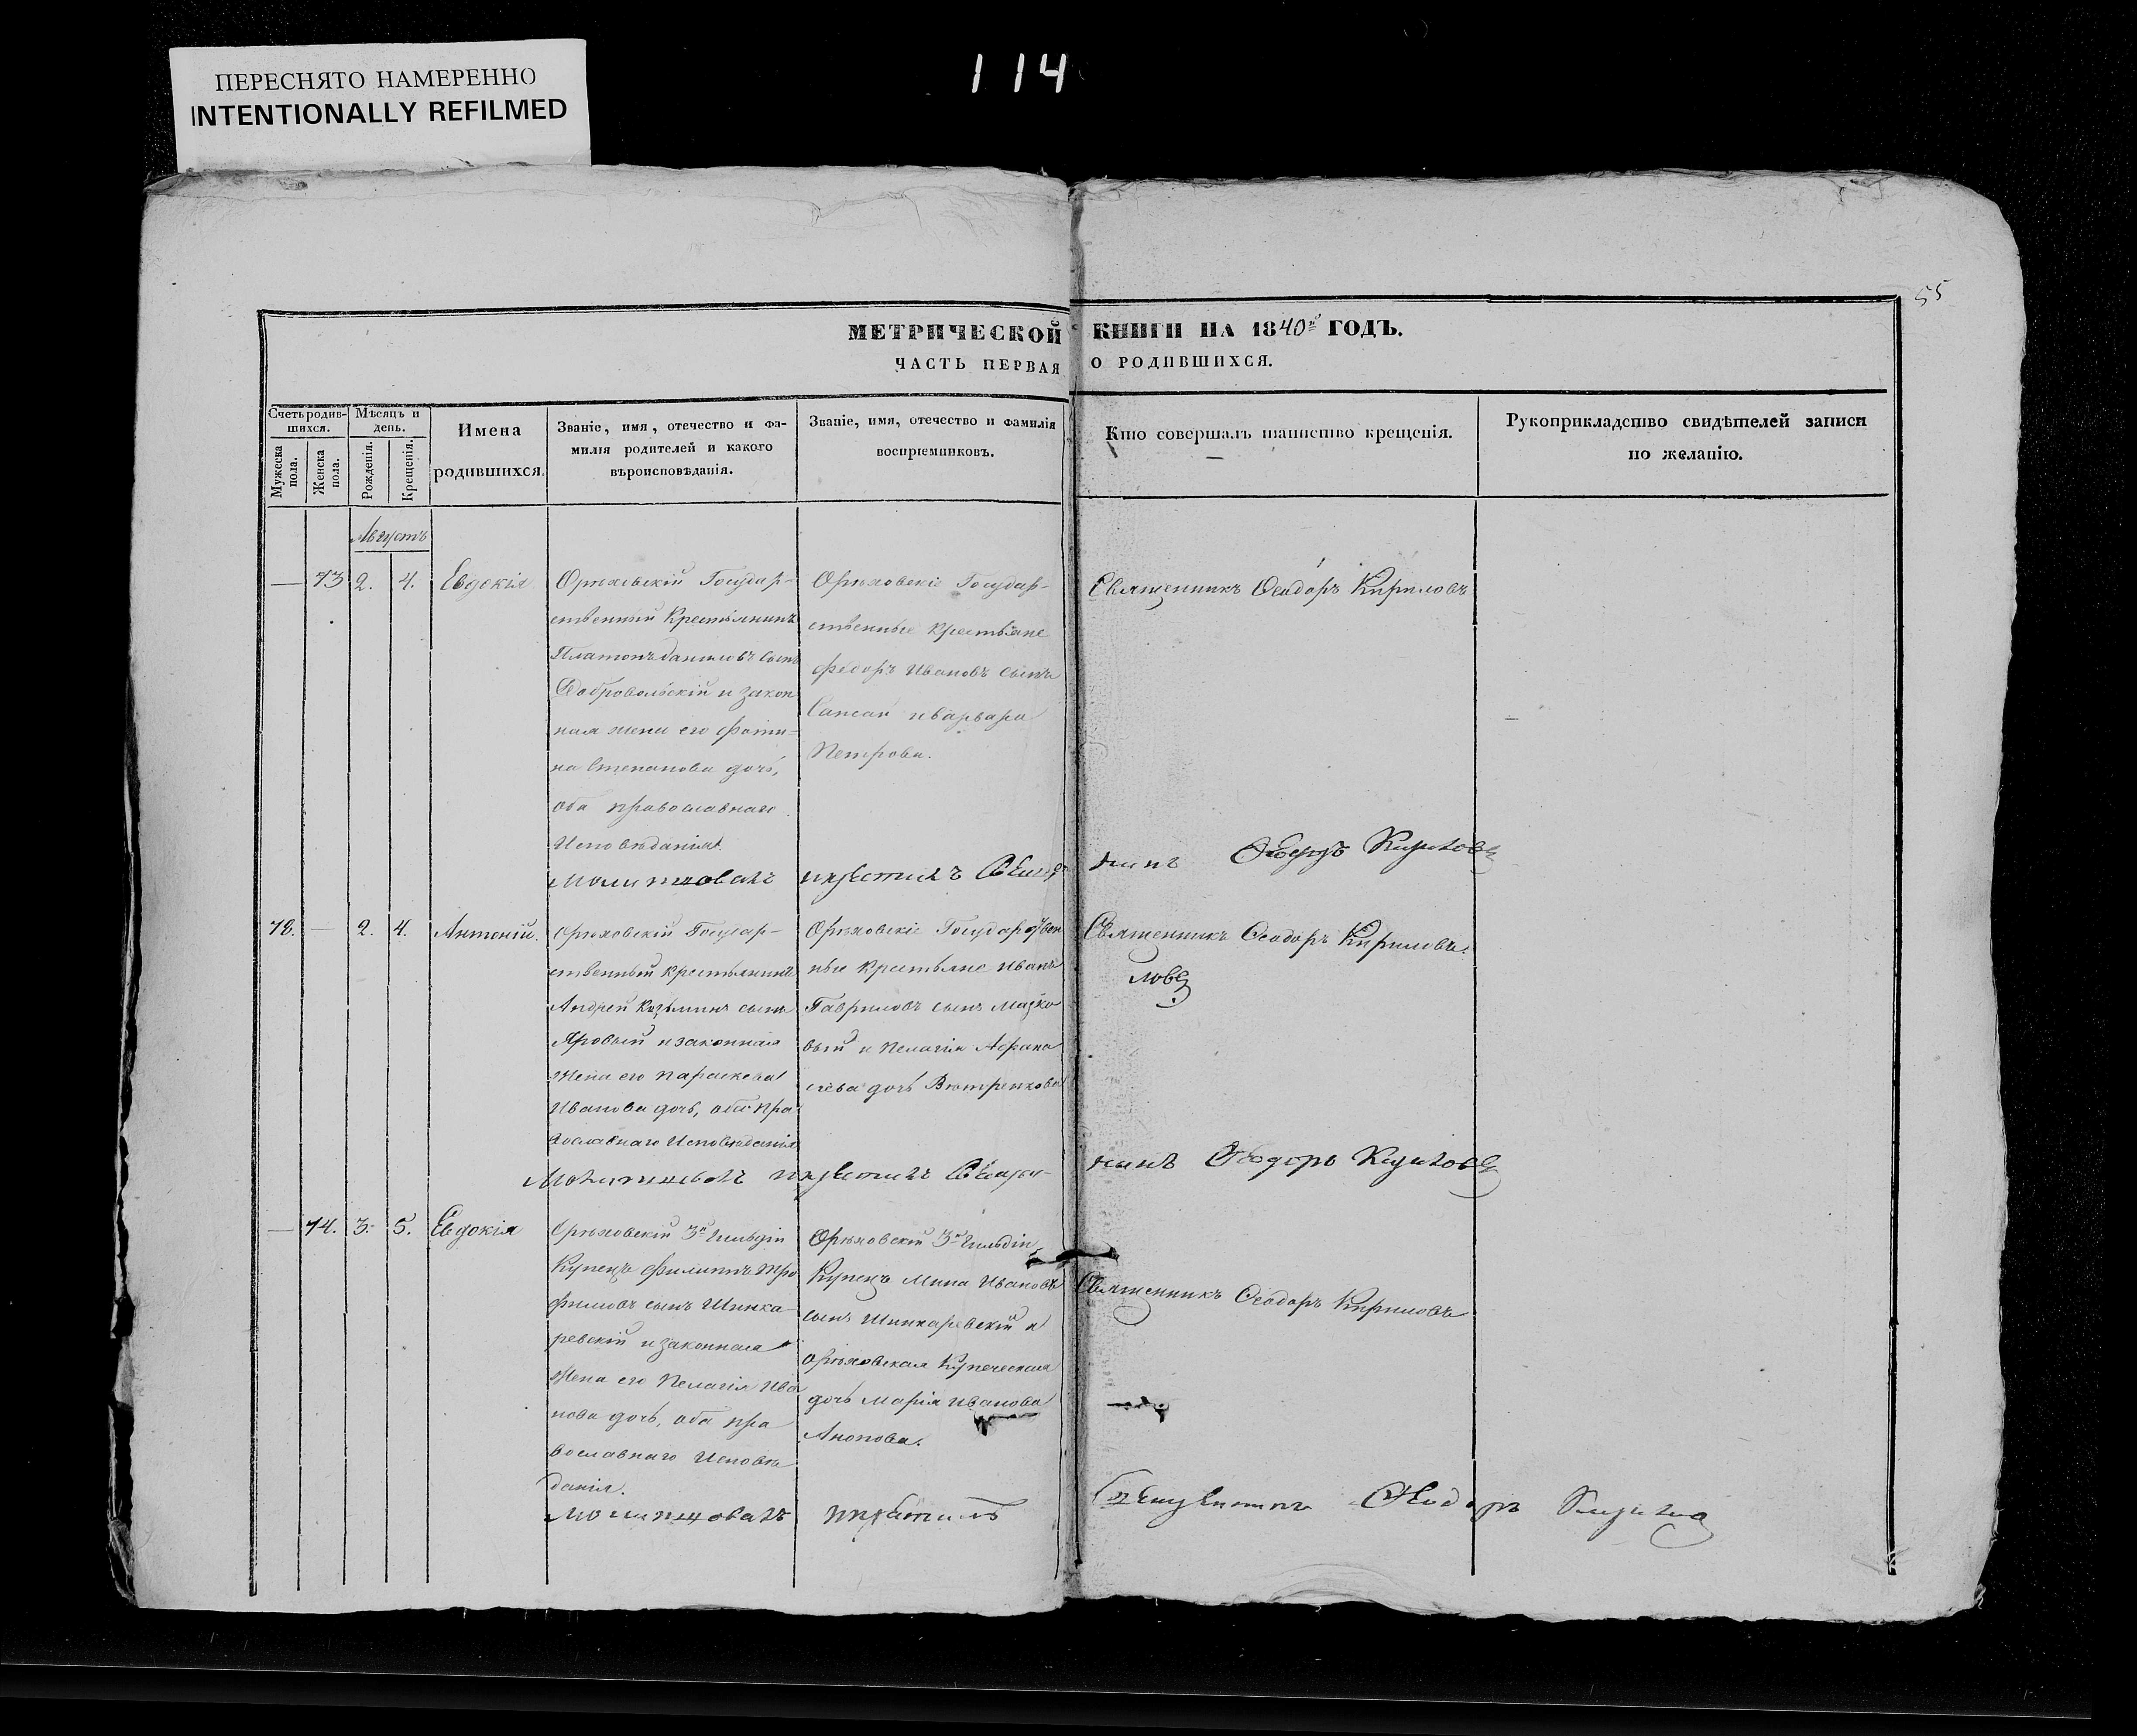 ПЕРЕСНЯТО НАМЕРЕННО
INTENTIONALLY REFILMED
114
55
МЕТРИЧЕСКОЙ КНИГИ НА 1840й ГОДЪ.
ЧАСТЬ ПЕРВАЯ О РОДИВШИХСЯ.
Счетъ родив-
шихся.
Мужеска
пола.
Женска
пола.
Мѣсяцъ и
день.
Рожденія.
Крещенія.
Имена
родившихся.
Званіе, имя, отечество и фа-
милія родителей и какого
вѣроисповѣданія.
Званіе, имя, отечество и фамилія
воспріемниковъ.
Кто совершалъ таинство крещенія.
Рукоприкладство свидѣтелей записи
по желанію.
Августъ
— 73 2. 4. Евдокія
Орѣховскій Государ-
ственный Крестьянинъ
Платонъ Даниловъ сынъ
Добровольскій и закон
ная жена его Фоти-
на Степанова дочь,
оба православнаго
Исповѣданія.
Орѣховскіе Государ-
ственные Крестьяне
Федоръ Ивановъ сынъ
Сапсай и Варвара
Петрова.
Священникъ Феодоръ Кириловъ
Молитвовалъ и крестилъ Священникъ Феодоръ Кириловъ
78. — 2. 4. Антоній.
Орѣховскій Государ-
ственный крестьянинъ
Андрей Козьминъ сынъ
Яровый и законная
Жена его Параскева
Иванова дочь, оба пра
вославнаго Исповѣданія
Орѣховскіе Государствен
ные Крестьяне Иванъ
Гавриловъ сынъ Мазко
вый и Пелагія Афана
сіева дочь Вѣтренкова
Священникъ Феодоръ Кириловъ.
ловъ
Молитвовалъ и крестилъ Священникъ Феодоръ Кириловъ
— 74. 3. 5. Евдокія
Орѣховскій 3й гильдіи
Купецъ Филиппъ Тро
фимовъ сынъ Шинка-
ревскій и законная
Жена его Пелагія Ива
нова дочь, оба пра
вославнаго Исповѣ
данія.
Орѣховскій 3й гильдіи
Купецъ Мина Ивановъ
сынъ Шинкаревскій и
Орѣховская Купеческая
дочь Марія Иванова
Анопова.
Священникъ Феодоръ Кириловъ
Молитвовалъ крестилъ Священникъ Феодоръ Кирилов